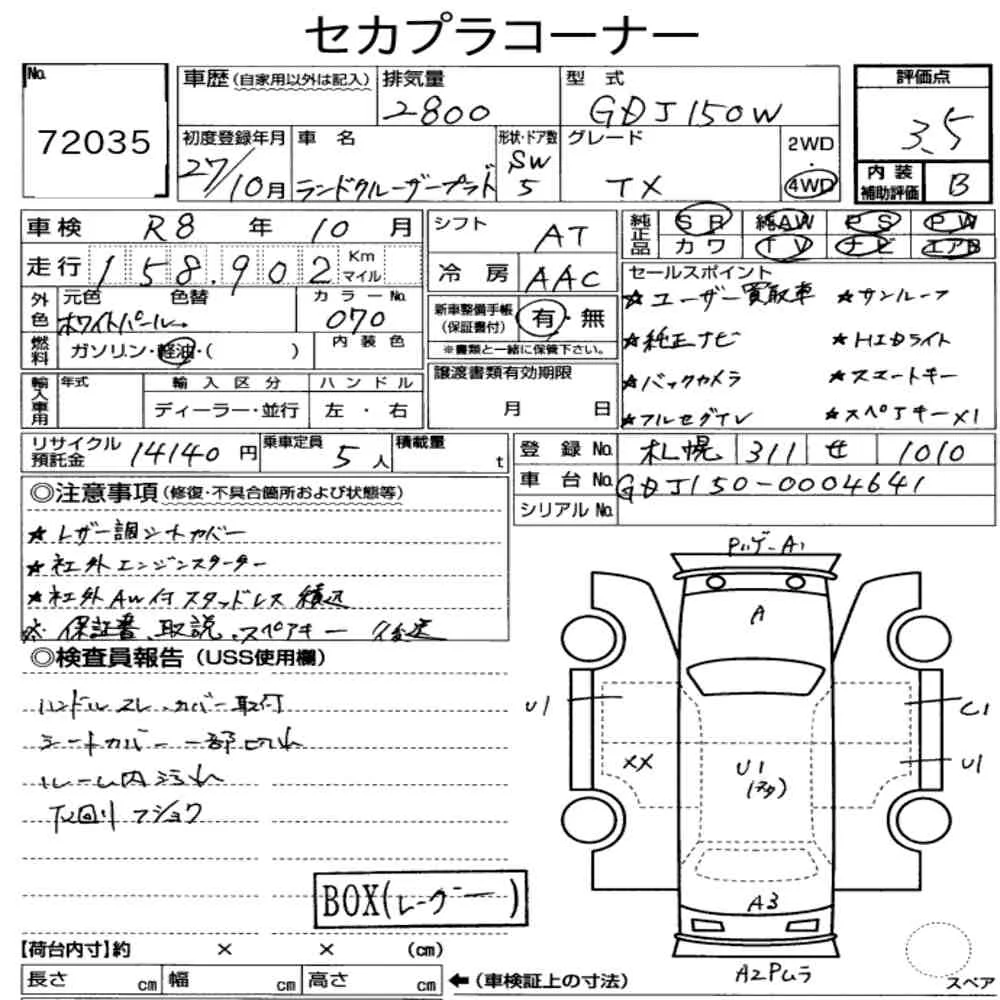 セカプラコーナー
No.
72035
車歴(自家用以外は記入) 排気量 型式
2800 GDJ150W
初度登録年月 車名 形状・ドア数 グレード
27/10月 ランドクルーザープラド SW 5 TX
2WD
・
4WD
評価点
3.5
内装
補助評価 B
車検 R8年10月
走行 158.902 Km
マイル
外色 元色 色替 カラーNo.
ホワイトパール→ 070
燃料 ガソリン・軽油・( ) 内装色
輸入車用 年式 輸入区分 ハンドル
ディーラー・並行 左・右
シフト AT
冷房 AAC
新車整備手帳
(保証書付) 有・無
※書類と一緒に保管下さい。
譲渡書類有効期限
月 日
純正品 SR 純AW PS PW
カワ TV ナビ エアB
セールスポイント
☆ユーザー買取車 ☆サンルーフ
☆純正ナビ ☆HIDライト
☆バックカメラ ☆スマートキー
☆フルセグTV ☆スペアキー×1
リサイクル
預託金 14140円 乗車定員 5人 積載量 t
登録No. 札幌 311 せ 1010
車台No. GDJ150-0004641
シリアルNo.
◎注意事項(修復・不具合箇所および状態等)
☆レザー調シートカバー
☆社外エンジンスターター
☆社外AW付スタッドレス積込
※保証書、取説、スペアキー 後送
◎検査員報告(USS使用欄)
ハンドルスレ・カバー取付
シートカバー一部切れ
ルーム内汚れ
下回りフショク
BOX(レーダー)
【荷台内寸】約 × × (cm)
長さ cm 幅 cm 高さ cm ←(車検証上の寸法)
A1
A
U1
C1
XX
U1
U1
A3
A2
スペア